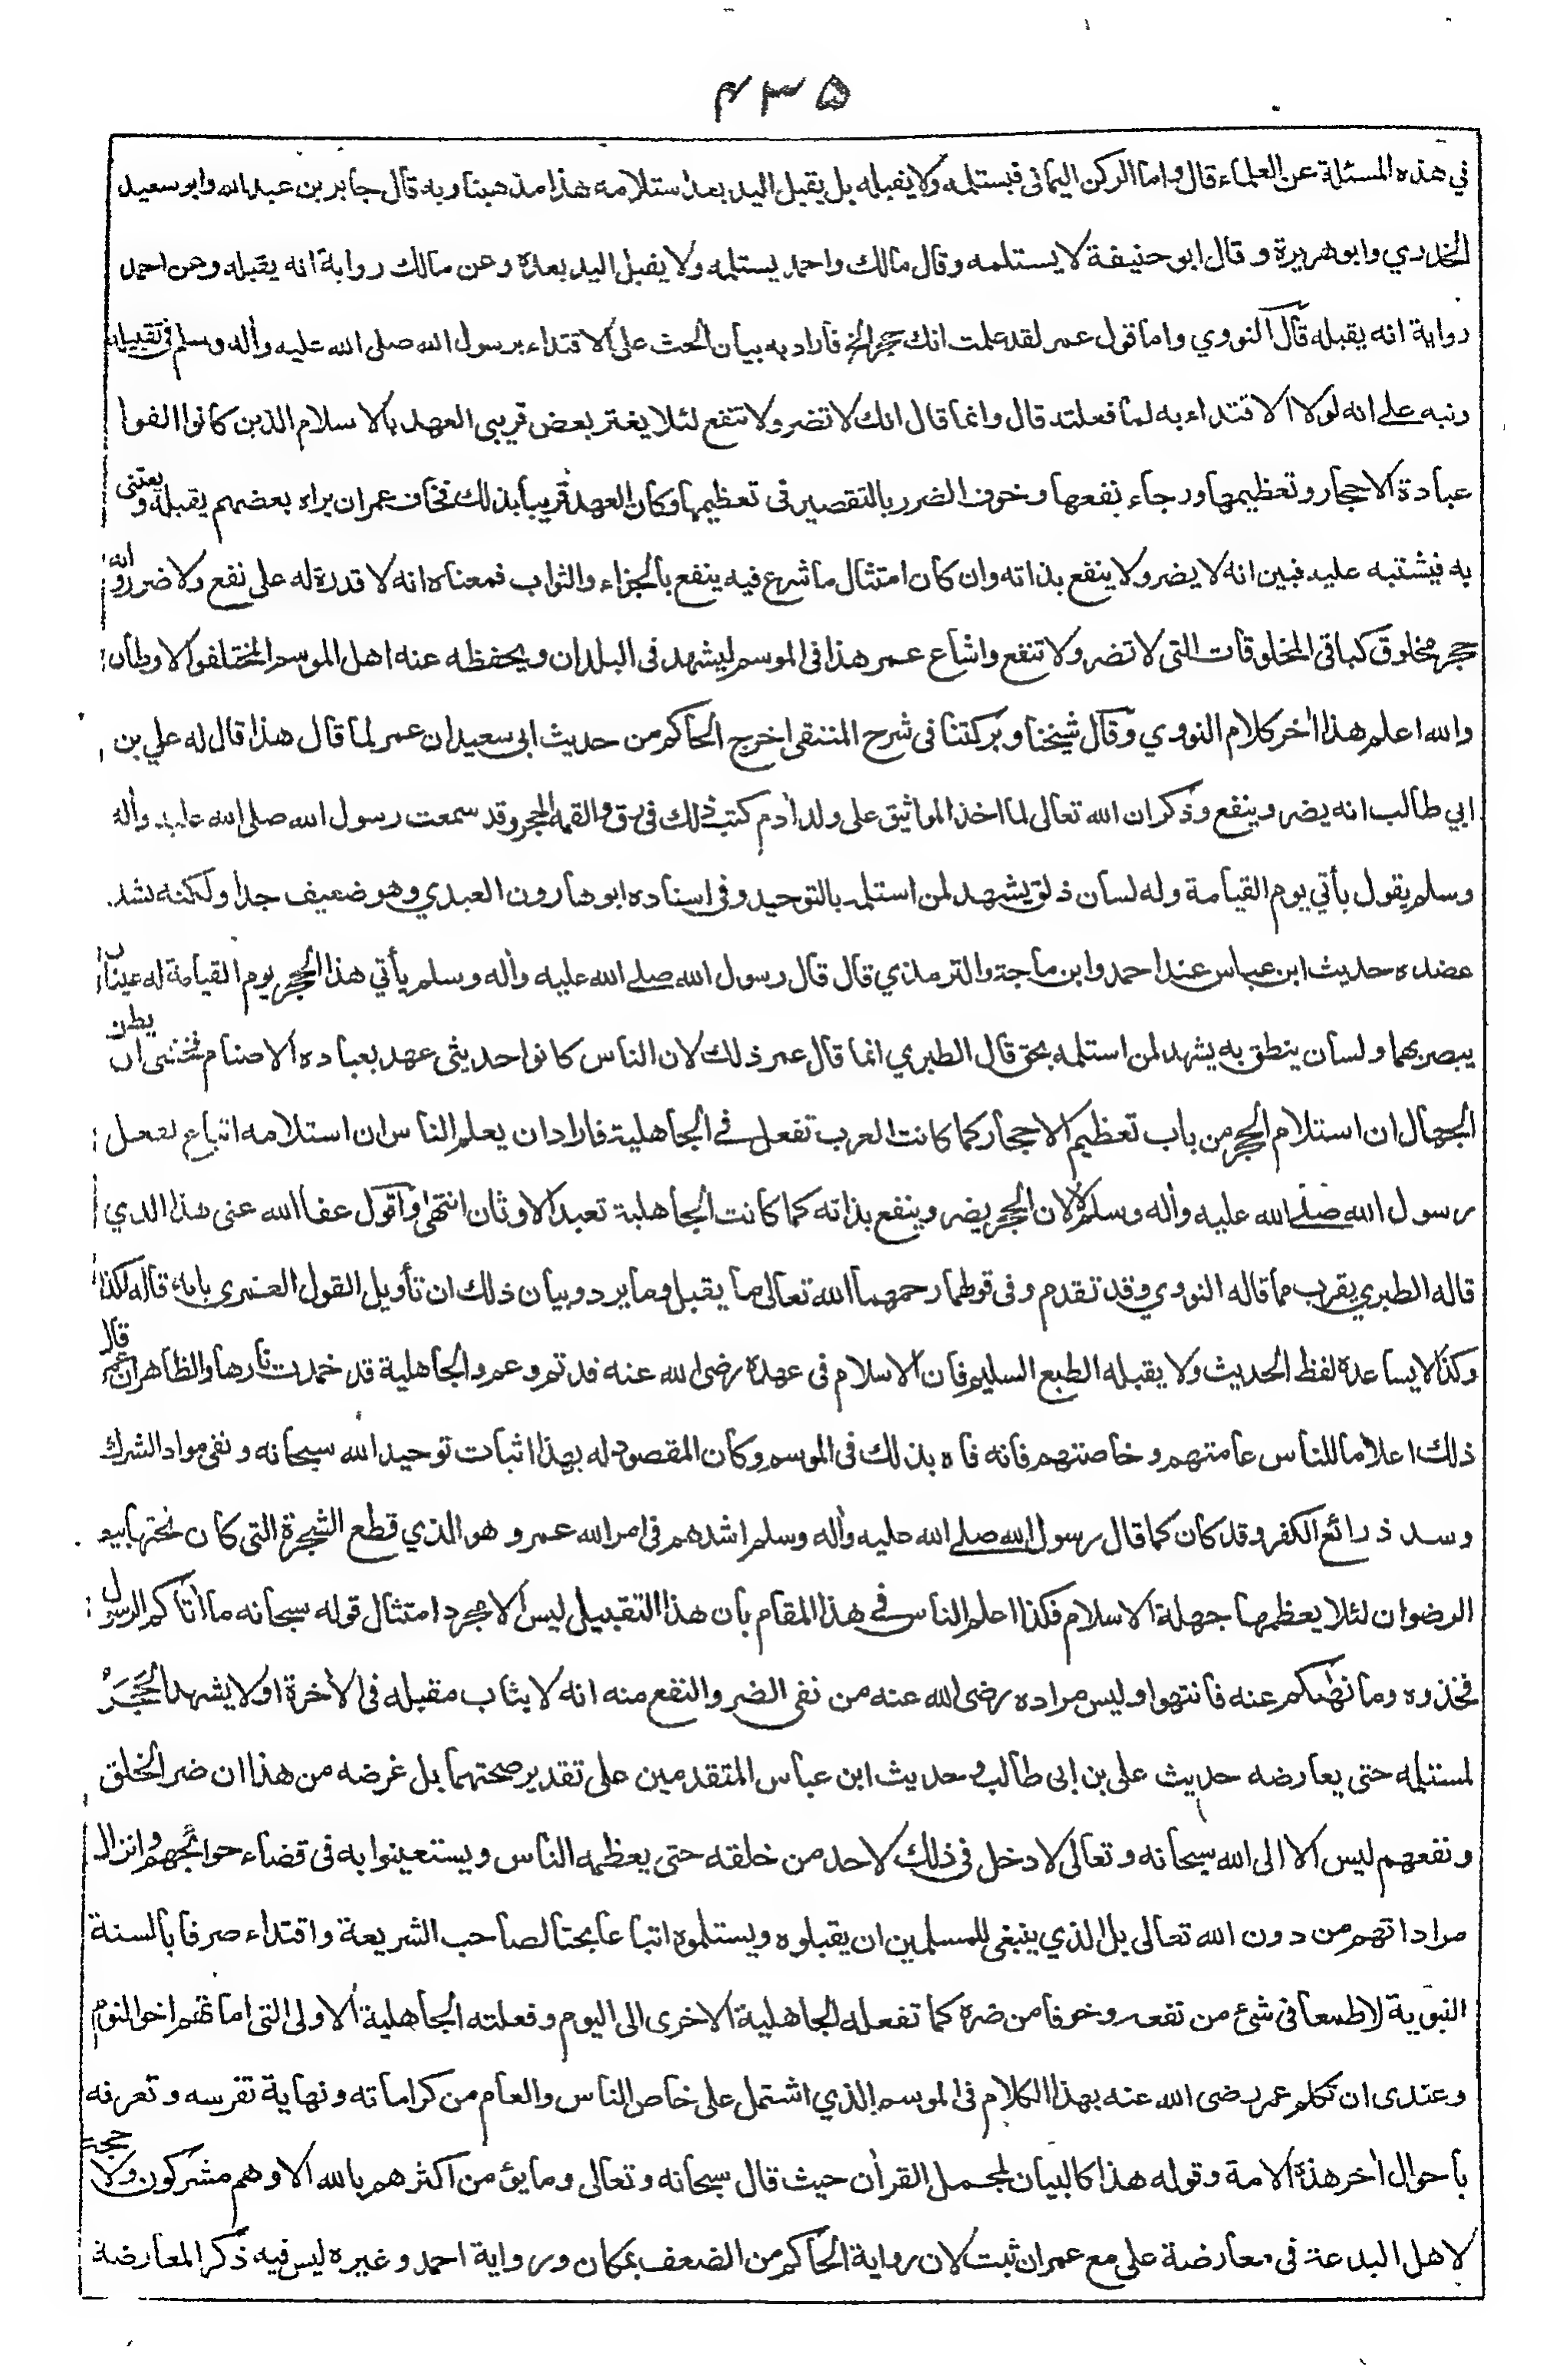 ۴۳۵
في هذه المسئلة عن العلماء قال واما الركن اليماني فيستلمه ولا يقبله بل يقبل اليد بعد استلامه هذا مذهبنا وبه قال جابر بن عبدالله وابو سعيد
الخدري وابوهريرة وقال ابو حنيفة لا يستلمه وقال مالك واحمد يستلمه ولا يقبل اليد بعده وعن مالك رواية انه يقبله وعن احمد
رواية انه يقبله قال النووي واما قول عمر لقد علمت انك حجر الخ فاراد به بيان الحث على الاقتداء برسول الله صلى الله عليه وأله وسلم في تقبيله
ونبه على انه لولا الاقتداء به لما فعلته قال وانما قال انك لا تضر ولا تنفع لئلا يغتر بعض قريبي العهد بالاسلام الذين كانوا الفوا
عبادة الاحجار وتعظيمها ورجاء نفعها وخوف الضرر بالتقصير في تعظيمها وكان العهد قريبا بذلك فخاف عمر ان يراه بعضهم يقبله ويعتني
به فيشتبه عليه فبين انه لا يضر ولا ينفع بذاته وان كان امتثال ما شرع فيه ينفع بالجزاء والثواب فمعناه انه لا قدرة له على نفع ولا ضر وانه
حجر مخلوق كباقي المخلوقات التي لا تضر ولا تنفع واشاع عمر هذا في الموسم ليشهد في البلدان ويحفظه عنه اهل الموسم المختلفوا الاوطان
والله اعلم هذا أخر كلام النووي وقال شيخنا وبركتنا في شرح المنتقى اخرج الحاكم من حديث ابي سعيد ان عمر لما قال هذا قال له علي بن
ابي طالب انه يضر وينفع وذكر ان الله تعالى لما اخذ المواثيق على ولد أدم كتب ذلك في رق والقمه الحجر وقد سمعت رسول الله صلى الله عليه وأله
وسلم يقول يأتي يوم القيامة وله لسان ذلق يشهد لمن استلمه بالتوحيد وفي اسناده ابو هارون العبدي وهو ضعيف جدا ولكنه يشد
عضده حديث ابن عباس عند احمد وابن ماجة والترمذي قال قال رسول الله صلى الله عليه وأله وسلم يأتي هذا الحجر يوم القيامة له عينان
يبصر بهما ولسان ينطق به يشهد لمن استلمه بحق قال الطبري انما قال عمر ذلك لان الناس كانوا حديثي عهد بعباده الاصنام فخشي ان يظن
الجهال ان استلام الحجر من باب تعظيم الاحجار كما كانت العرب تفعل في الجاهلية فاراد ان يعلم الناس ان استلامه اتباع لفعل
رسول الله صلى الله عليه وأله وسلم لا لان الحجر يضر وينفع بذاته كما كانت الجاهلية تعبد الاوثان انتهى واقول عفا الله عني هذا الذي
قاله الطبري يقرب مما قاله النووي وقد تقدم وفي قولهما رحمهما الله تعالى ما يقبل وما يرد وبيان ذلك ان تأويل القول العمري بانه قاله لكذا
وكذا لا يساعده لفظ الحديث ولا يقبله الطبع السليم فان الاسلام في عهده رضي الله عنه قد تم وعم والجاهلية قد خمدت نارها والظاهر ان عمر قال
ذلك اعلاما للناس عامتهم وخاصتهم فانه فاه بذلك في الموسم وكان المقصود له بهذا اثبات توحيد الله سبحانه ونفي مواد الشرك
وسد ذرائع الكفر وقد كان كما قال رسول الله صلى الله عليه وأله وسلم اشدهم في امر الله عمر وهو الذي قطع الشجرة التي كان تحتها بيعة
الرضوان لئلا يعظمها جهلة الاسلام فكذا اعلم الناس في هذا المقام بان هذا التقبيل ليس الا مجرد امتثال قوله سبحانه ما أتاكم الرسول
فخذوه وما نهٰىكم عنه فانتهوا وليس مراده رضي الله عنه من نفي الضر والنفع منه انه لا يثاب مقبله في الأخرة او لا يشهد الحَجَرُ
لمستلمه حتى يعارضه حديث علي بن ابي طالب وحديث ابن عباس المتقدمين على تقدير صحتهما بل غرضه من هذا ان ضر الخلق
ونفعهم ليس الا الى الله سبحانه وتعالى لا دخل في ذلك لاحد من خلقه حتى يعظمه الناس ويستعينوا به في قضاء حوائجهم وانزال
مراداتهم من دون الله تعالى بل الذي ينبغي للمسلمين ان يقبلوه ويستلموه اتباعا بحتا لصاحب الشريعة واقتداء صرفا بالسنة
النبوية لا طمعا في شئ من نفعه وخوفا من ضره كما تفعله الجاهلية الاخرى الى اليوم وفعلته الجاهلية الاولى التي اماتهم اخو النوم
وعندي ان تكلم عمر رضي الله عنه بهذا الكلام في الموسم الذي اشتمل على خاص الناس والعام من كراماته ونهاية تفرسه وتعرفه
باحوال أخر هذه الامة وقوله هذا كالبيان لمجمل القرأن حيث قال سبحانه وتعالى وما يؤمن اكثرهم بالله الا وهم مشركون ولا حجة
لاهل البدعة في معارضة علي مع عمر ان ثبت لان رواية الحاكم من الضعف بمكان ورواية احمد وغيره ليس فيه ذكر المعارضة